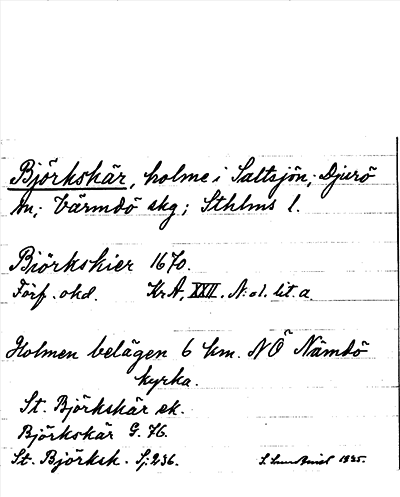 Björkskär, holme i Saltsjön; Djurö
sn; Värmdö skg; Sthlms l.
Biörkskier 1670.
Förf. okd. KrA, XXII. N:o 1. lit. a
Holmen belägen 6 km. NÖ Nämdö
kyrka.
St. Björkskär ek.
Björkskär G. 76.
St. Björksk. Sj: 236. 1935.